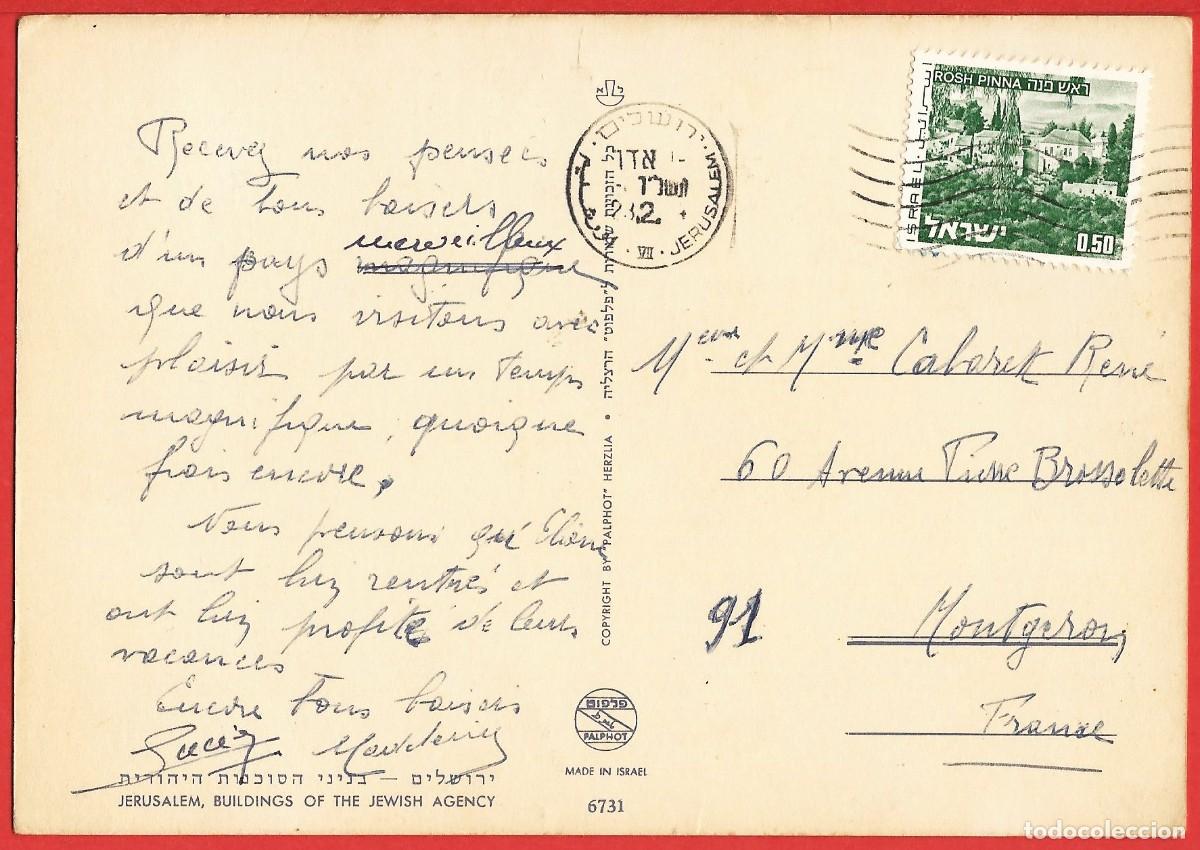 Recevez nos pensées
et de bons baisers
d'un pays merveilleux
magnifique
que nous visitons avec
plaisir par un temps
magnifique, quoique
frais encore.
Nous pensons qu'
sont bien rentrés et
ont bien profité de leurs
vacances
Encore bons baisers
Madeleine
ירושלים – בניני הסוכנות היהודית
JERUSALEM, BUILDINGS OF THE JEWISH AGENCY
COPYRIGHT BY "PALPHOT" HERZLIA • כל הזכויות שמורות ל"פלפוט" הרצליה
פלפוט
PALPHOT
MADE IN ISRAEL
6731
ירושלים
אדר
תשל"ד
2
VII · JERUSALEM
ROSH PINNA ראש פנה
ISRAEL
ישראל
0.50
Meur et Mme Cabarett René
60 Avenue Pierre Brossolette
91 Montgeron
France
todocoleccion